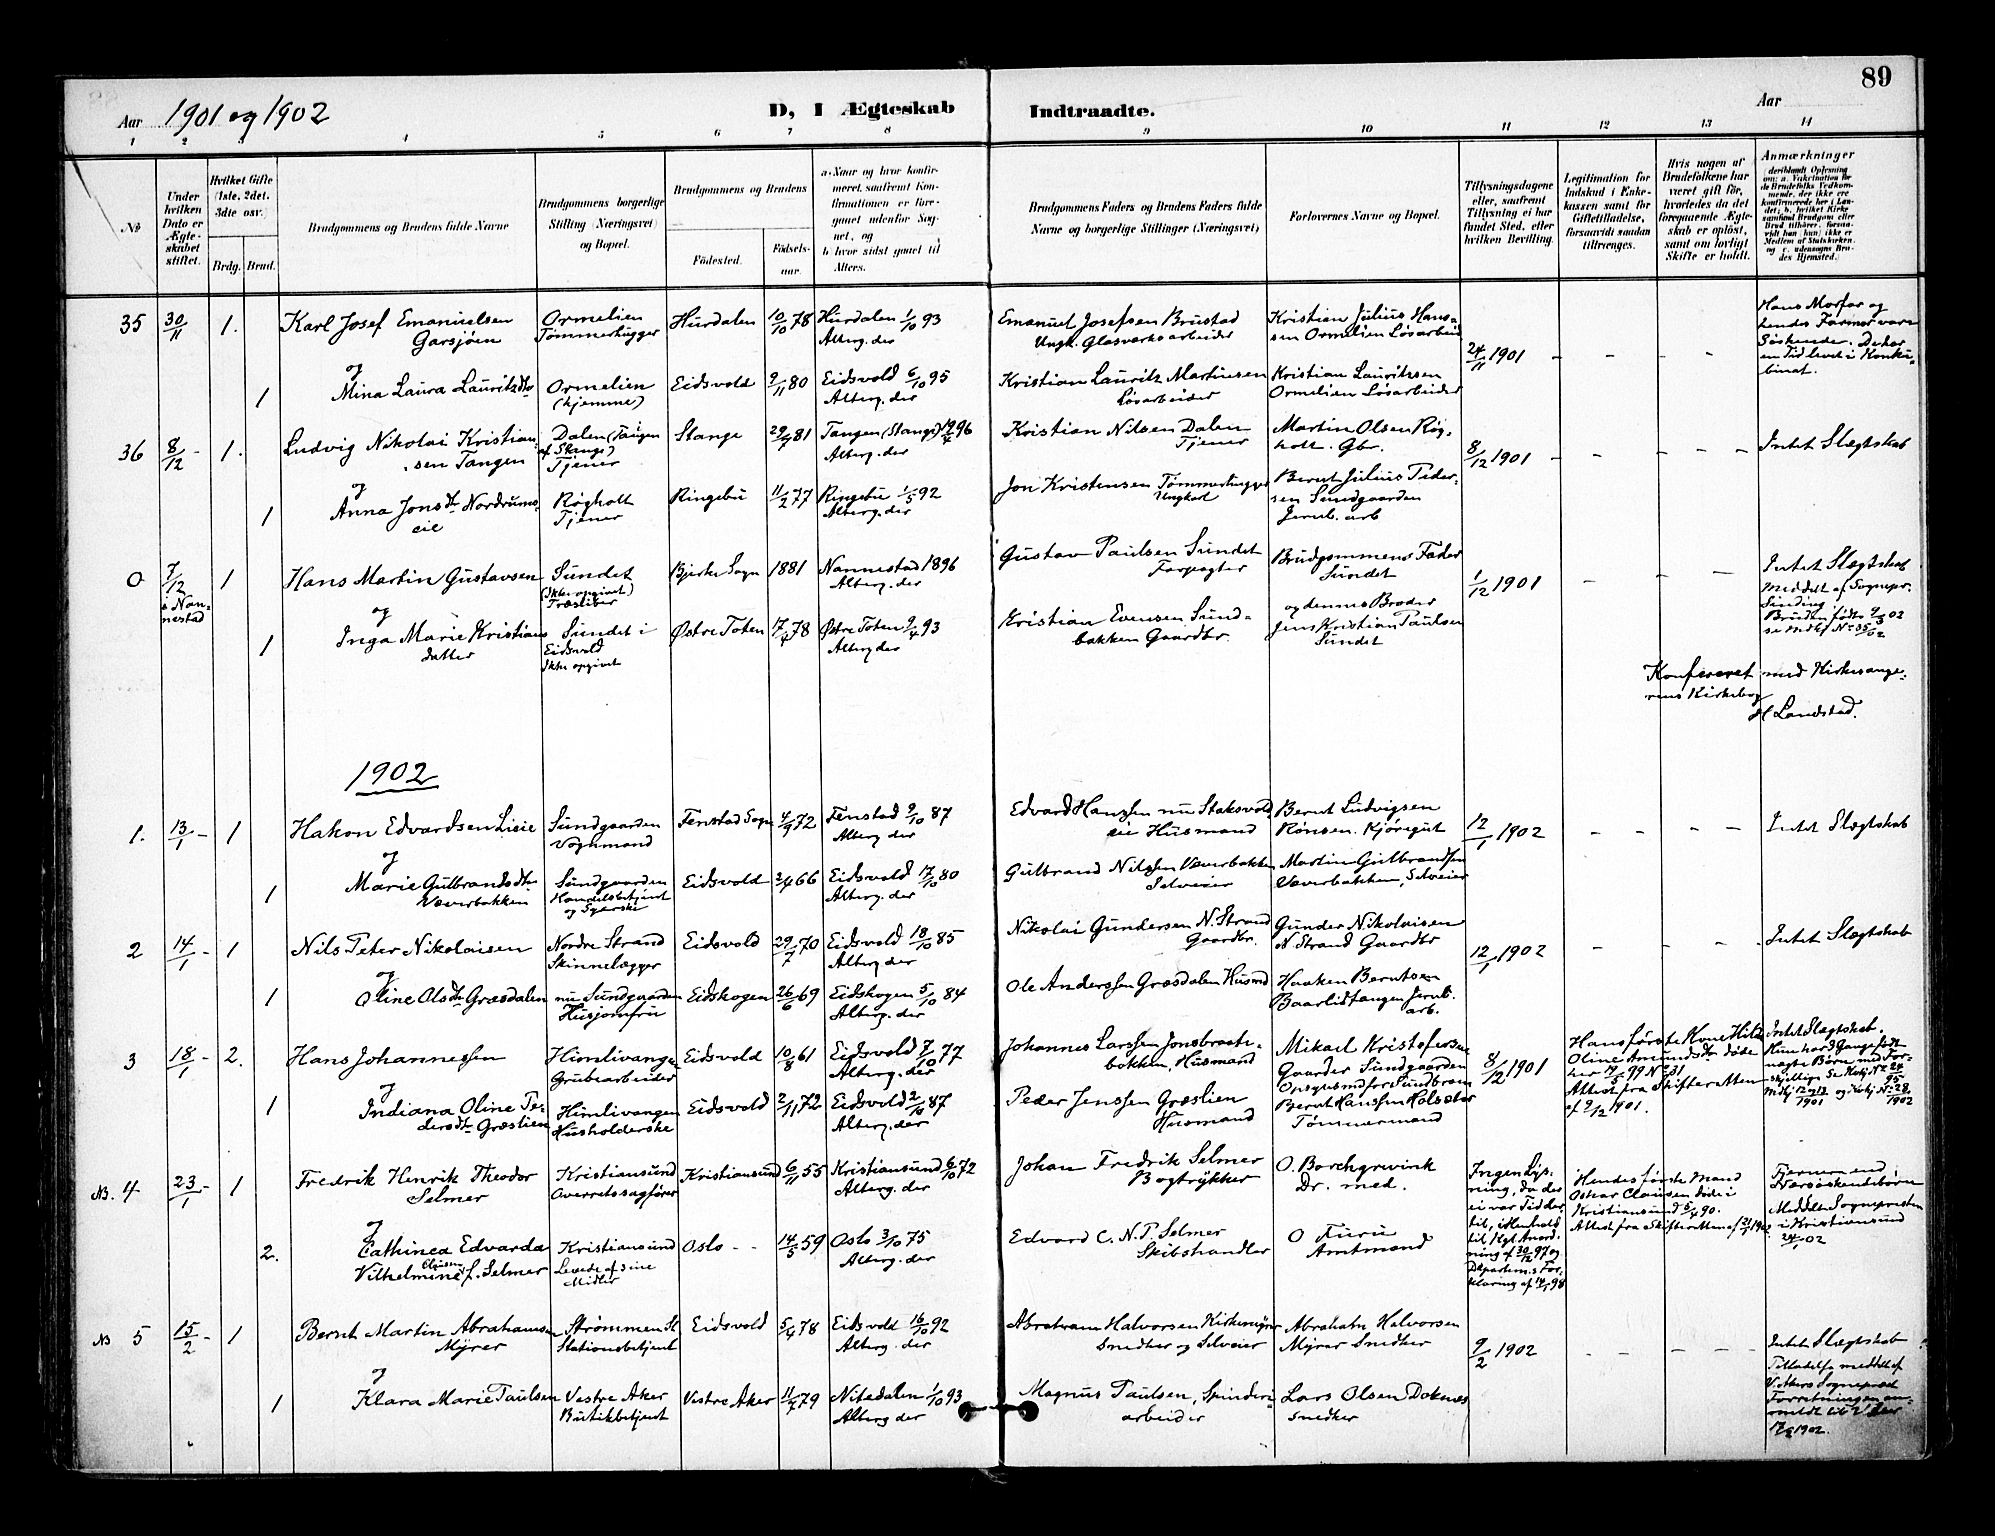 89
Aar 1901 og 1902
D, I Ægteskab Indtraadte.
Aar
1 2 3 4 5 6 7 8 9 10 11 12 13 14
No
Under hvilken Dato er Ægteskabet stiftet.
Hvilket Gifte (1ste, 2det, 3die osv.)
Brdg. Brud.
Brudgommens og Brudens fulde Navne
Brudgommens borgerlige Stilling (Næringsvei) og Bopæl.
Brudgommens og Brudens
Fødested. Fødselsaar.
a. Naar og hvor konfirmeret, saafremt Konfirmationen er foregaaet udenfor Sognet, og
b. hvor sidst gaaet til Alters.
Brudgommens Faders og Brudens Faders fulde Navne og borgerlige Stillinger (Næringsvei)
Forlovernes Navne og Bopæl.
Tillysningsdagene eller, saafremt Tillysning ei har fundet Sted, efter hvilken Bevilling.
Legitimation for Indskud i Enkekassen samt for Giftetilladelse, forsaavidt saadan tiltrænges.
Hvis nogen af Brudefolkene har været gift før, hvorledes da det foregaaende Ægteskab er opløst, samt om lovligt Skifte er holdt.
Anmærkninger
35 30/11 1.
Karl Josef Emanuelsen
Garsjøen
Ormelien
Tømmerhugger
Hurdalen 10/10 78
Hurdalen 1/10 93
Alterg. der
Emanuel Josefsen Brustad
Ungk. Glasværksarbeider
Kristian Julius Han-
sen Ormelien Løsarbeid
24/11 1901
Hans Morfar og
hendes Farmor vare
Søskende. De har
en Tid levet i Konku-
binat.
og
1
Mina Laura Lauritzdtr
Ormelien
(hjemme)
Eidsvold 9/11 80
Eidsvold 6/10 95
Alterg. der
Kristian Lauritz Martinsen
Løsarbeider
Kristian Lauritzsen
Ormelien Løsarbeider
36 8/12 - 1.
Ludvig Nikolai Kristian-
sen Tangen
Dalen (Tangen
af Stange)
Tjener
Stange 29/9 81
Tangen (Stange) 96
Alterg. der
Kristian Nilsen Dalen
Tjener
Martin Olsen Røg-
holt. Gbr.
8/12 1901
Intet Slægtskab
og
1
Anna Jonsdtr Nordrums-
eie
Røgholt
Tjener
Ringebu 11/2 77
Ringebu 1/5 92
Alterg. der
Jon Kristensen Tømmerhugger
Ungkarl
Bernt Julius Peder-
sen Sundgaarden
Jernb. arb
0 7/12
i Nan-
nestad
1
Hans Martin Gustavsen
Sundet
(Ikke opgivet)
Træsliber
Bjerke Sogn 1881
Nannestad 1896
Alterg. der
Gustav Paulsen Sundet
Forpagter
Brudgommens Fader
Sundet
1/12 1901
Intet Slægtskab
Meddelt af Sognepr.
Sinding
Bruden født 9/3 02
se Mdkf No 35/02
og
1
Inga Marie Kristians
datter
Sundet i
Eidsvold
Ikke opgivet
Østre Toten 17/4 78
Østre Toten 9/4 93
Alterg der
Kristian Evensen Sund-
bakken Gaardbr.
og dennes Broder
Jens Kristian Paulsen
Sundet
Konfereret med Kirkesange-
rens Kirkebog
Landstad.
1902
1. 13/1 - 1
Hakon Edvardsen Lieie
Sundgaarden
Vognmand
Fenstad Sogn 4/9 72
Fenstad 9/10 87
Alterg der
Edvard Hanssen nu Staksvold
eie Husmand
Bernt Ludvigsen
Rønsen. Kjøregut
12/1 1902
Intet Slægtskab
og
1
Marie Gulbrandsdtr
Væverbakken
Sundgaarden
Handelsbetjent
og Syerske
Eidsvold 2/4 66
Eidsvold 17/10 80
Alterg. der
Gulbrand Nilssen Væverbakken
Selveier
Martin Gulbrandsen
Væverbakken, Selveier
2 14/1 - 1
Nils Peter Nikolaisen
Nordre Strand
Skinnelægger
Eidsvold 29/7 70
Eidsvold 18/10 85
Alterg der
Nikolai Gundersen N. Strand
Gaardbr.
Gunder Nikolaisen
N Strand Gaardbr
12/1 1902
Intet Slægtskab
og
1
Oline Olsdtr Græsdalen
nu Sundgaarden
Husjomfru
Eidskogen 26/6 69
Eidskogen 5/10 84
Alterg. der
Ole Anderssen Græsdalen Husmd
Haaken Berntsen
Baarlidtangen Jernb.
arb.
3 18/1 - 2.
Hans Johannessen
Himlivangen
Grubearbeider
Eidsvold 10/8 61
Eidsvold 7/10 77
Alterg. der
Johannes Larssen Jonsbraat-
bakken, Husmand
Mikael Kristofersen
Gaarder Sundgaarden
Opsynsmd for Sundbroen
8/12 1901
Hans første Kone Hilda
Oline Amundsdtr døde
her 19/5 99 No 31
Attest fra Skifteretten
af 9/12 1901.
Intet Slægtskab.
Hun har 2 Gange født
uægte Børn med For-
skjellige
og
1
Indiana Oline Pe-
dersdtr Græslien
Himlivangen
Husholderske
Eidsvold 2/11 72
Eidsvold 2/10 87
Alterg. der
Peder Jenssen Græslien
Husmand
Bernt Hanssen Holsæter
Tømmermand
NB. 4 23/1 - 1
Fredrik Henrik Theodor
Selmer
Kristiansund
Overretssagfører
Kristiansund 6/11 55
Kristiansund 6/10 72
Alterg. der
Johan Fredrik Selmer
Bogtrykker
O. Borchgrevink
Dr. med.
Ingen Lys-
ning, da der
ei var Tid der-
til, i Henhold
til Kgl. Anord-
ning af 30/12 97 og
Departem.s For-
klaring af 14/1 98
Hendes første Mand
Oskar Clausen døde i
Kristiansund 5/4 90.
Attest fra Skifteretten af 21/1 1902
Fjernere end
Næstsøskendebørn
Meddelt Sognepresten
i Kristiansund
24/1 02
og
2.
Cathinca Edvarda
Vilhelmine Clausen f. Selmer
Kristiansund
Levede af sine
Midler
Oslo - - 14/5 59
Oslo 3/10 75
Alterg. der
Edvard C. N. P. Selmer
Skibshandler
O Furu
Amtmand
NB 5 15/2 - 1
Bernt Martin Abrahamsen
Myrer
Strømmen St
Stationsbetjent
Eidsvold 5/4 78
Eidsvold 16/10 92
Alterg. der
Abraham Halvorsen Kirkemyrer
Snedker og Selveier
Abraham Halvorsen
Myrer Snedker
9/2 1902
Intet Slægtskab
Tilladelse meddelt af
V. Akers Sogneprest
Forretningen an-
meldt til V. Aker
1902.
og
1
Klara Marie Paulsen
Vestre Aker
Butikbetjent
Vestre Aker 11/7 79
Nitedalen 1/10 93
Alterg der
Magnus Paulsen, Spinderi-
arbeider
Lars Olsen Doknæs
Snedker